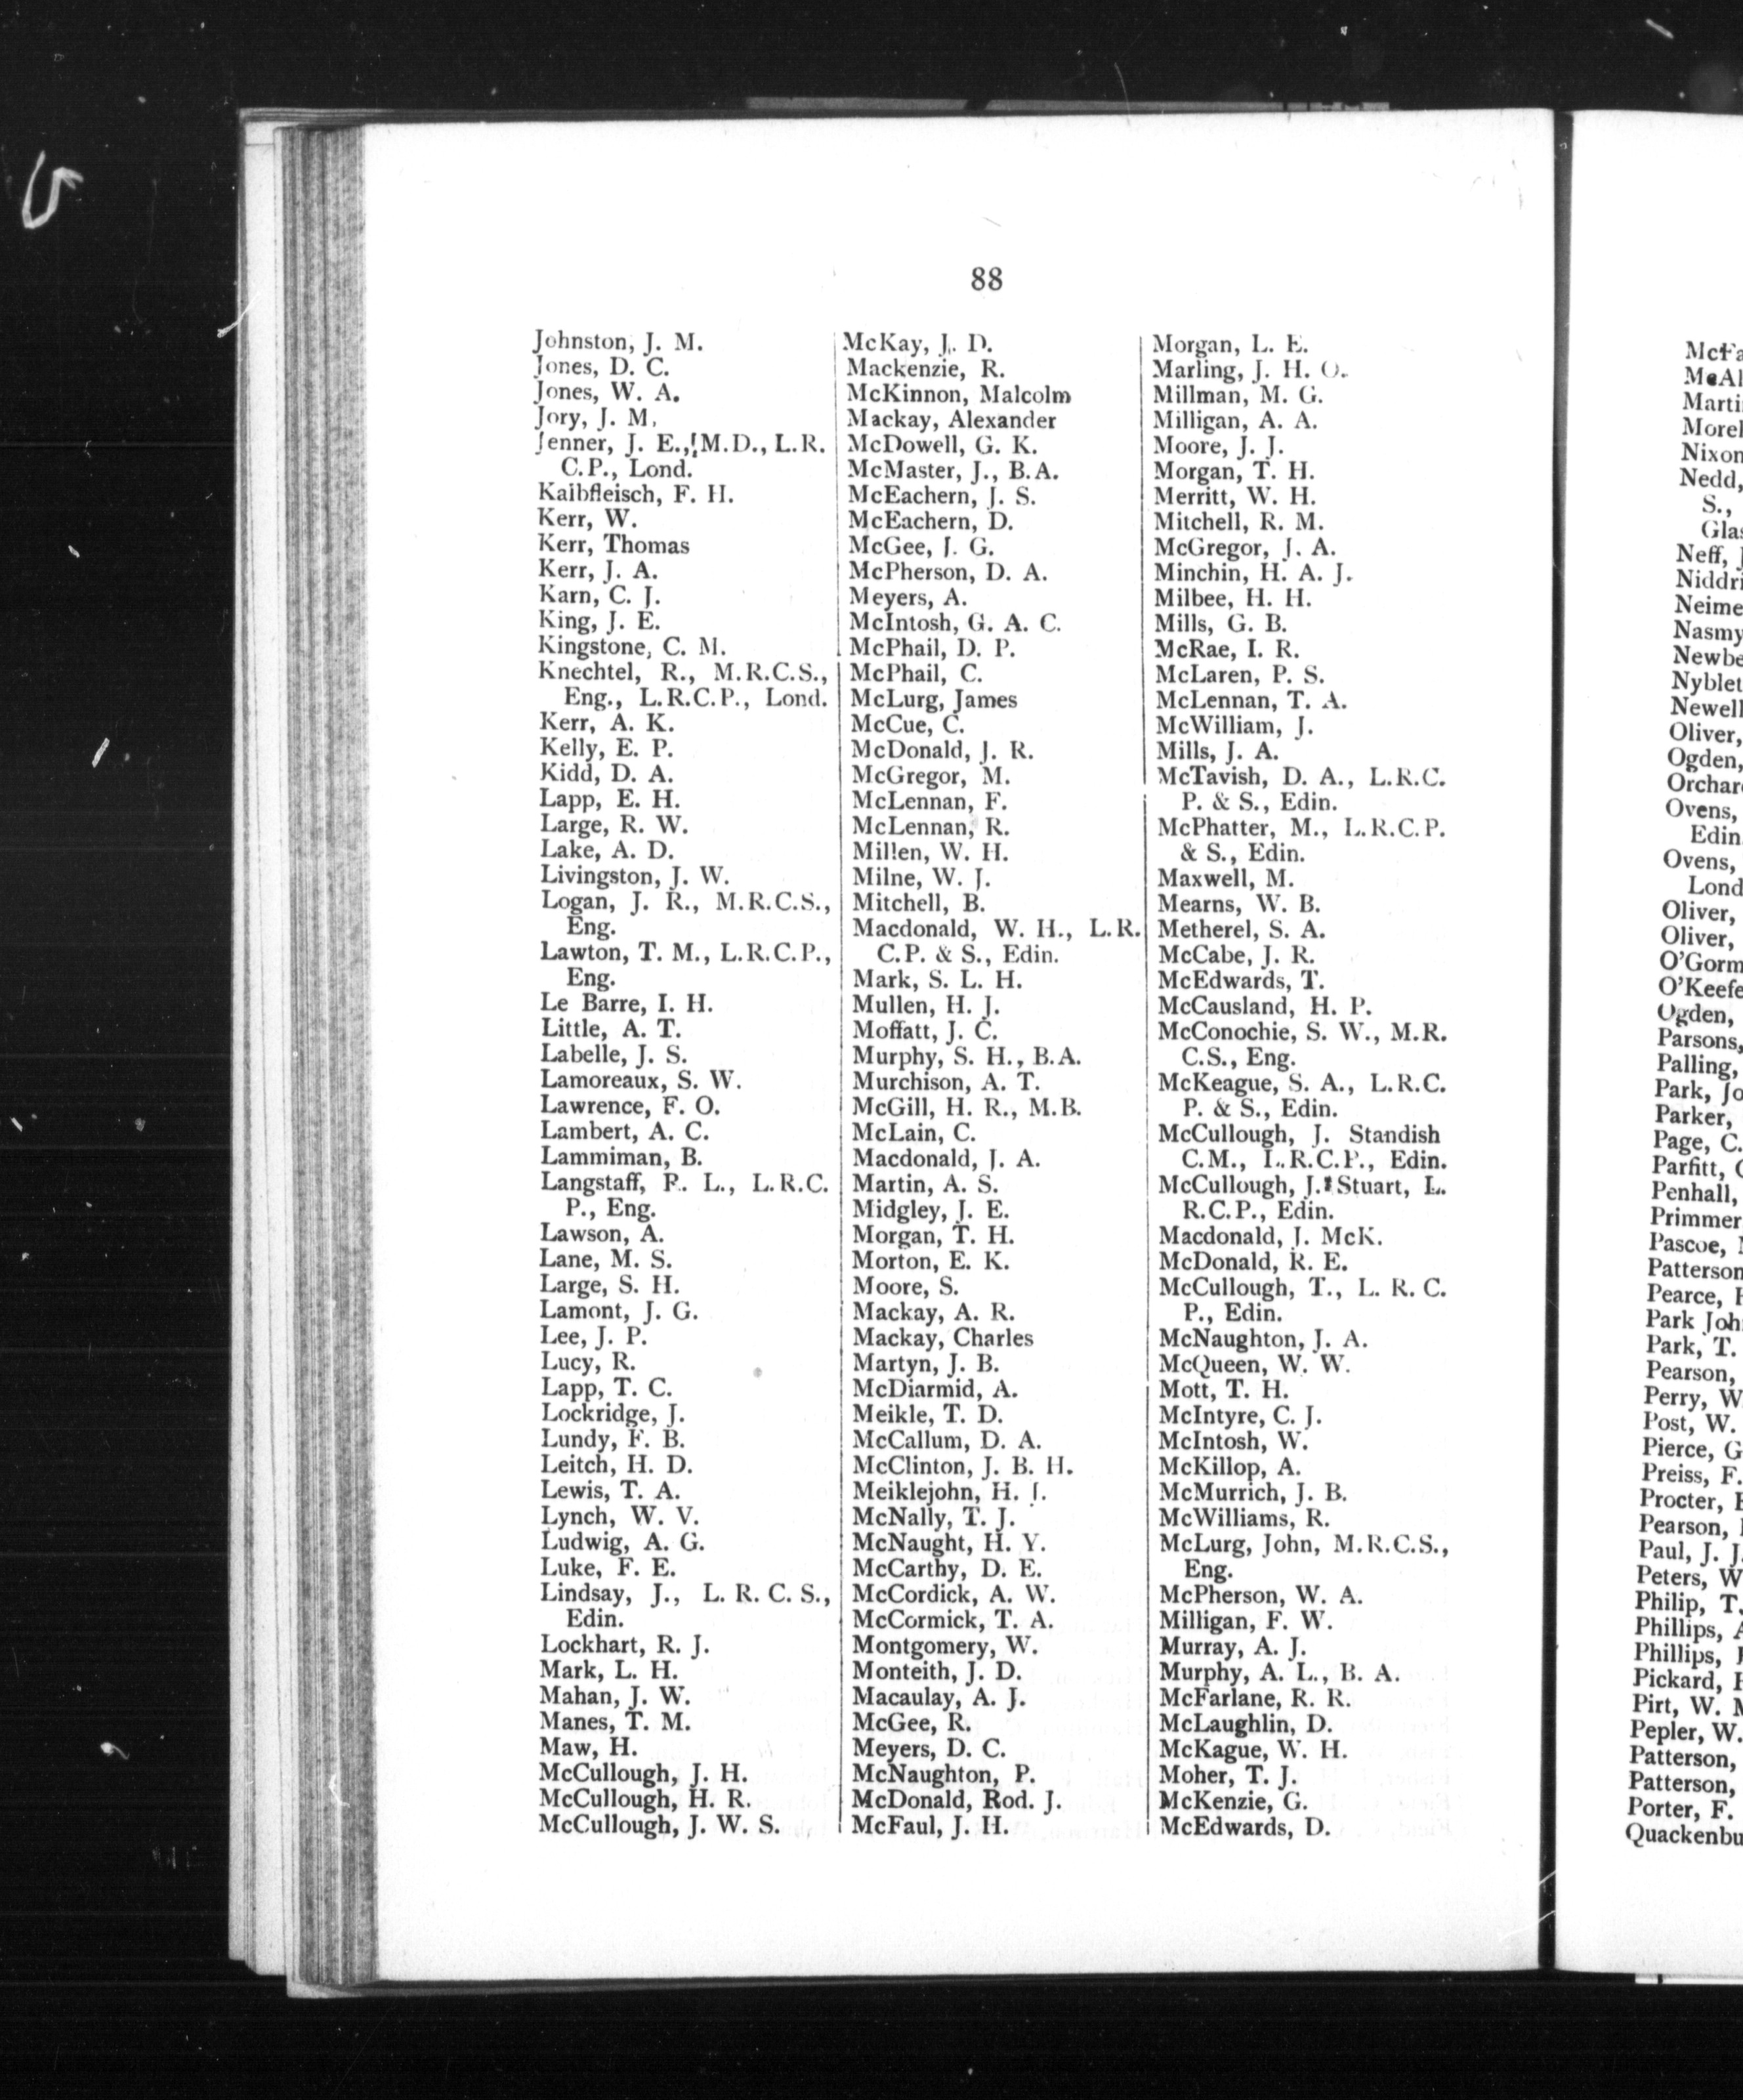 88
Johnston, J. M.
Jones, D. C.
Jones, W. A.
Jory, J. M.
Jenner, J. E., M.D., L.R.
C.P., Lond.
Kaibfleisch, F. H.
Kerr, W.
Kerr, Thomas
Kerr, J. A.
Karn, C. J.
King, J. E.
Kingstone, C. M.
Knechtel, R., M.R.C.S.,
Eng., L.R.C.P., Lond.
Kerr, A. K.
Kelly, E. P.
Kidd, D. A.
Lapp, E. H.
Large, R. W.
Lake, A. D.
Livingston, J. W.
Logan, J. R., M.R.C.S.,
Eng.
Lawton, T. M., L.R.C.P.,
Eng.
Le Barre, I. H.
Little, A. T.
Labelle, J. S.
Lamoreaux, S. W.
Lawrence, F. O.
Lambert, A. C.
Lammiman, B.
Langstaff, R. L., L.R.C.
P., Eng.
Lawson, A.
Lane, M. S.
Large, S. H.
Lamont, J. G.
Lee, J. P.
Lucy, R.
Lapp, T. C.
Lockridge, J.
Lundy, F. B.
Leitch, H. D.
Lewis, T. A.
Lynch, W. V.
Ludwig, A. G.
Luke, F. E.
Lindsay, J., L. R. C. S.,
Edin.
Lockhart, R. J.
Mark, L. H.
Mahan, J. W.
Manes, T. M.
Maw, H.
McCullough, J. H.
McCullough, H. R.
McCullough, J. W. S.
McKay, J. D.
Mackenzie, R.
McKinnon, Malcolm
Mackay, Alexander
McDowell, G. K.
McMaster, J., B.A.
McEachern, J. S.
McEachern, D.
McGee, J. G.
McPherson, D. A.
Meyers, A.
McIntosh, G. A. C.
McPhail, D. P.
McPhail, C.
McLurg, James
McCue, C.
McDonald, J. R.
McGregor, M.
McLennan, F.
McLennan, R.
Millen, W. H.
Milne, W. J.
Mitchell, B.
Macdonald, W. H., L.R.
C.P. & S., Edin.
Mark, S. L. H.
Mullen, H. J.
Moffatt, J. C.
Murphy, S. H., B.A.
Murchison, A. T.
McGill, H. R., M.B.
McLain, C.
Macdonald, J. A.
Martin, A. S.
Midgley, J. E.
Morgan, T. H.
Morton, E. K.
Moore, S.
Mackay, A. R.
Mackay, Charles
Martyn, J. B.
McDiarmid, A.
Meikle, T. D.
McCallum, D. A.
McClinton, J. B. H.
Meiklejohn, H. J.
McNally, T. J.
McNaught, H. Y.
McCarthy, D. E.
McCordick, A. W.
McCormick, T. A.
Montgomery, W.
Monteith, J. D.
Macaulay, A. J.
McGee, R.
Meyers, D. C.
McNaughton, P.
McDonald, Rod. J.
McFaul, J. H.
Morgan, L. E.
Marling, J. H. O.
Millman, M. G.
Milligan, A. A.
Moore, J. J.
Morgan, T. H.
Merritt, W. H.
Mitchell, R. M.
McGregor, J. A.
Minchin, H. A. J.
Milbee, H. H.
Mills, G. B.
McRae, I. R.
McLaren, P. S.
McLennan, T. A.
McWilliam, J.
Mills, J. A.
McTavish, D. A., L.R.C.
P. & S., Edin.
McPhatter, M., L.R.C.P.
& S., Edin.
Maxwell, M.
Mearns, W. B.
Metherel, S. A.
McCabe, J. R.
McEdwards, T.
McCausland, H. P.
McConochie, S. W., M.R.
C.S., Eng.
McKeague, S. A., L.R.C.
P. & S., Edin.
McCullough, J. Standish
C.M., L.R.C.P., Edin.
McCullough, J. Stuart, L.
R.C.P., Edin.
Macdonald, J. McK.
McDonald, R. E.
McCullough, T., L. R. C.
P., Edin.
McNaughton, J. A.
McQueen, W. W.
Mott, T. H.
McIntyre, C. J.
McIntosh, W.
McKillop, A.
McMurrich, J. B.
McWilliams, R.
McLurg, John, M.R.C.S.,
Eng.
McPherson, W. A.
Milligan, F. W.
Murray, A. J.
Murphy, A. L., B. A.
McFarlane, R. R.
McLaughlin, D.
McKague, W. H.
Moher, T. J.
McKenzie, G.
McEdwards, D.
Nixon
Nedd,
S.,
Neff, J
Oliver,
Ogden,
Ovens,
Edin
Ovens,
Lond
Oliver,
Oliver,
O'Keefe
Ogden,
Parsons,
Palling,
Park, Jo
Parker,
Page, C.
Parfitt,
Penhall,
Primmer
Pascoe,
Patterson
Pearce,
Park Joh
Park, T.
Pearson,
Perry, W
Post, W.
Pierce, G
Preiss, F.
Procter,
Pearson,
Paul, J. J.
Peters, W
Philip, T.
Phillips, A
Phillips,
Pickard,
Pirt, W. M
Pepler, W.
Patterson,
Patterson,
Porter, F.
Quackenbu